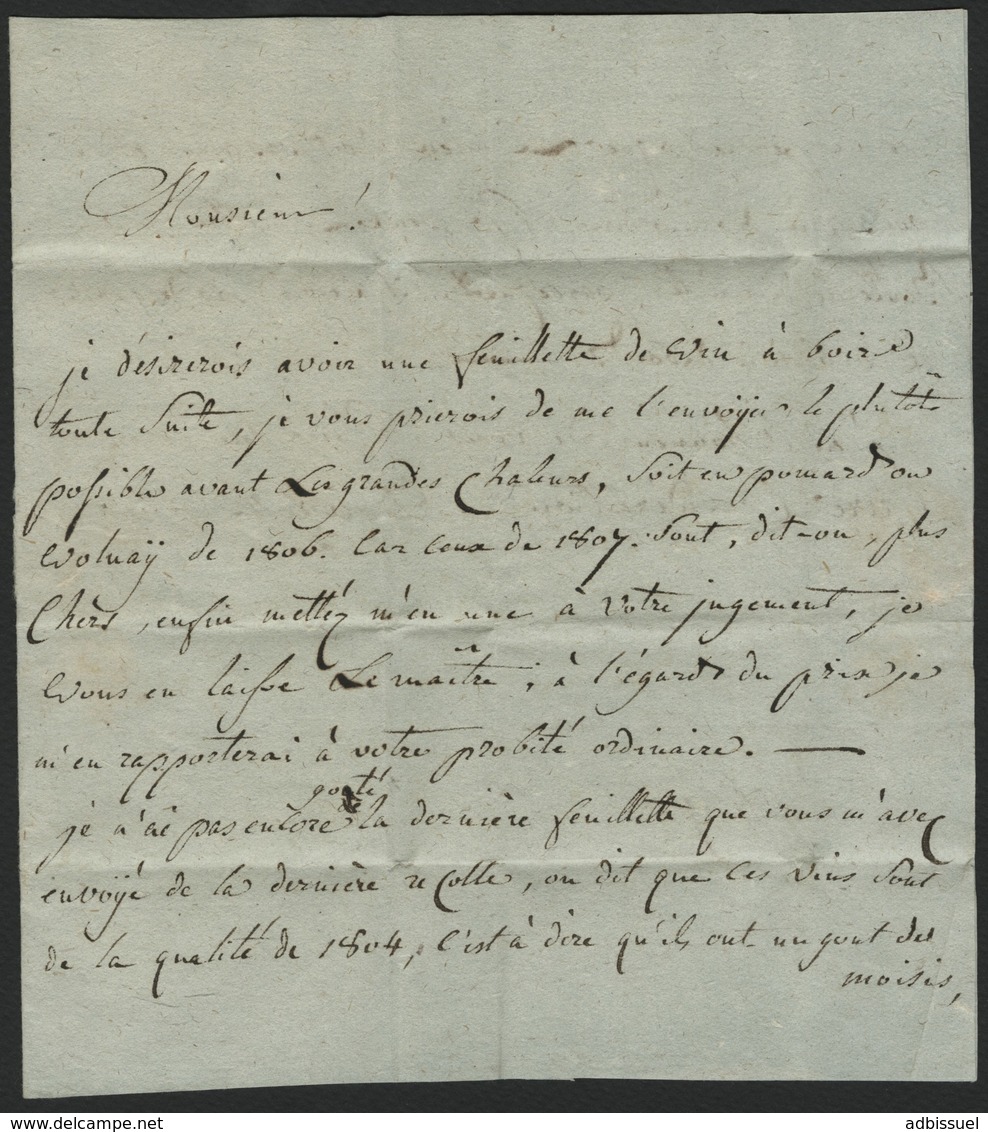 Monsieur !
je désirerois avoir une feuillette de vin à boire
toute Suite, je vous prierois de me l'envoÿer le plutôt
possible avant Les grandes Chaleurs, Soit en pomard ou
volnaÿ de 1806. Car ceux de 1807. Sont, dit-on, plus
Chèrs, enfin mettéz m'en une à votre jugement, je
vous en laisse Le maître, à l'égard du prix je
m'en rapporterai à votre probité ordinaire. —
gouté
je n'ai pas encore la dernière feuillette que vous m'avez
envoÿé de la dernière recolte, on dit que ces vins Sont
de la qualité de 1804, C'est à dire qu'ils ont un gout de
moisis,
adbissuel